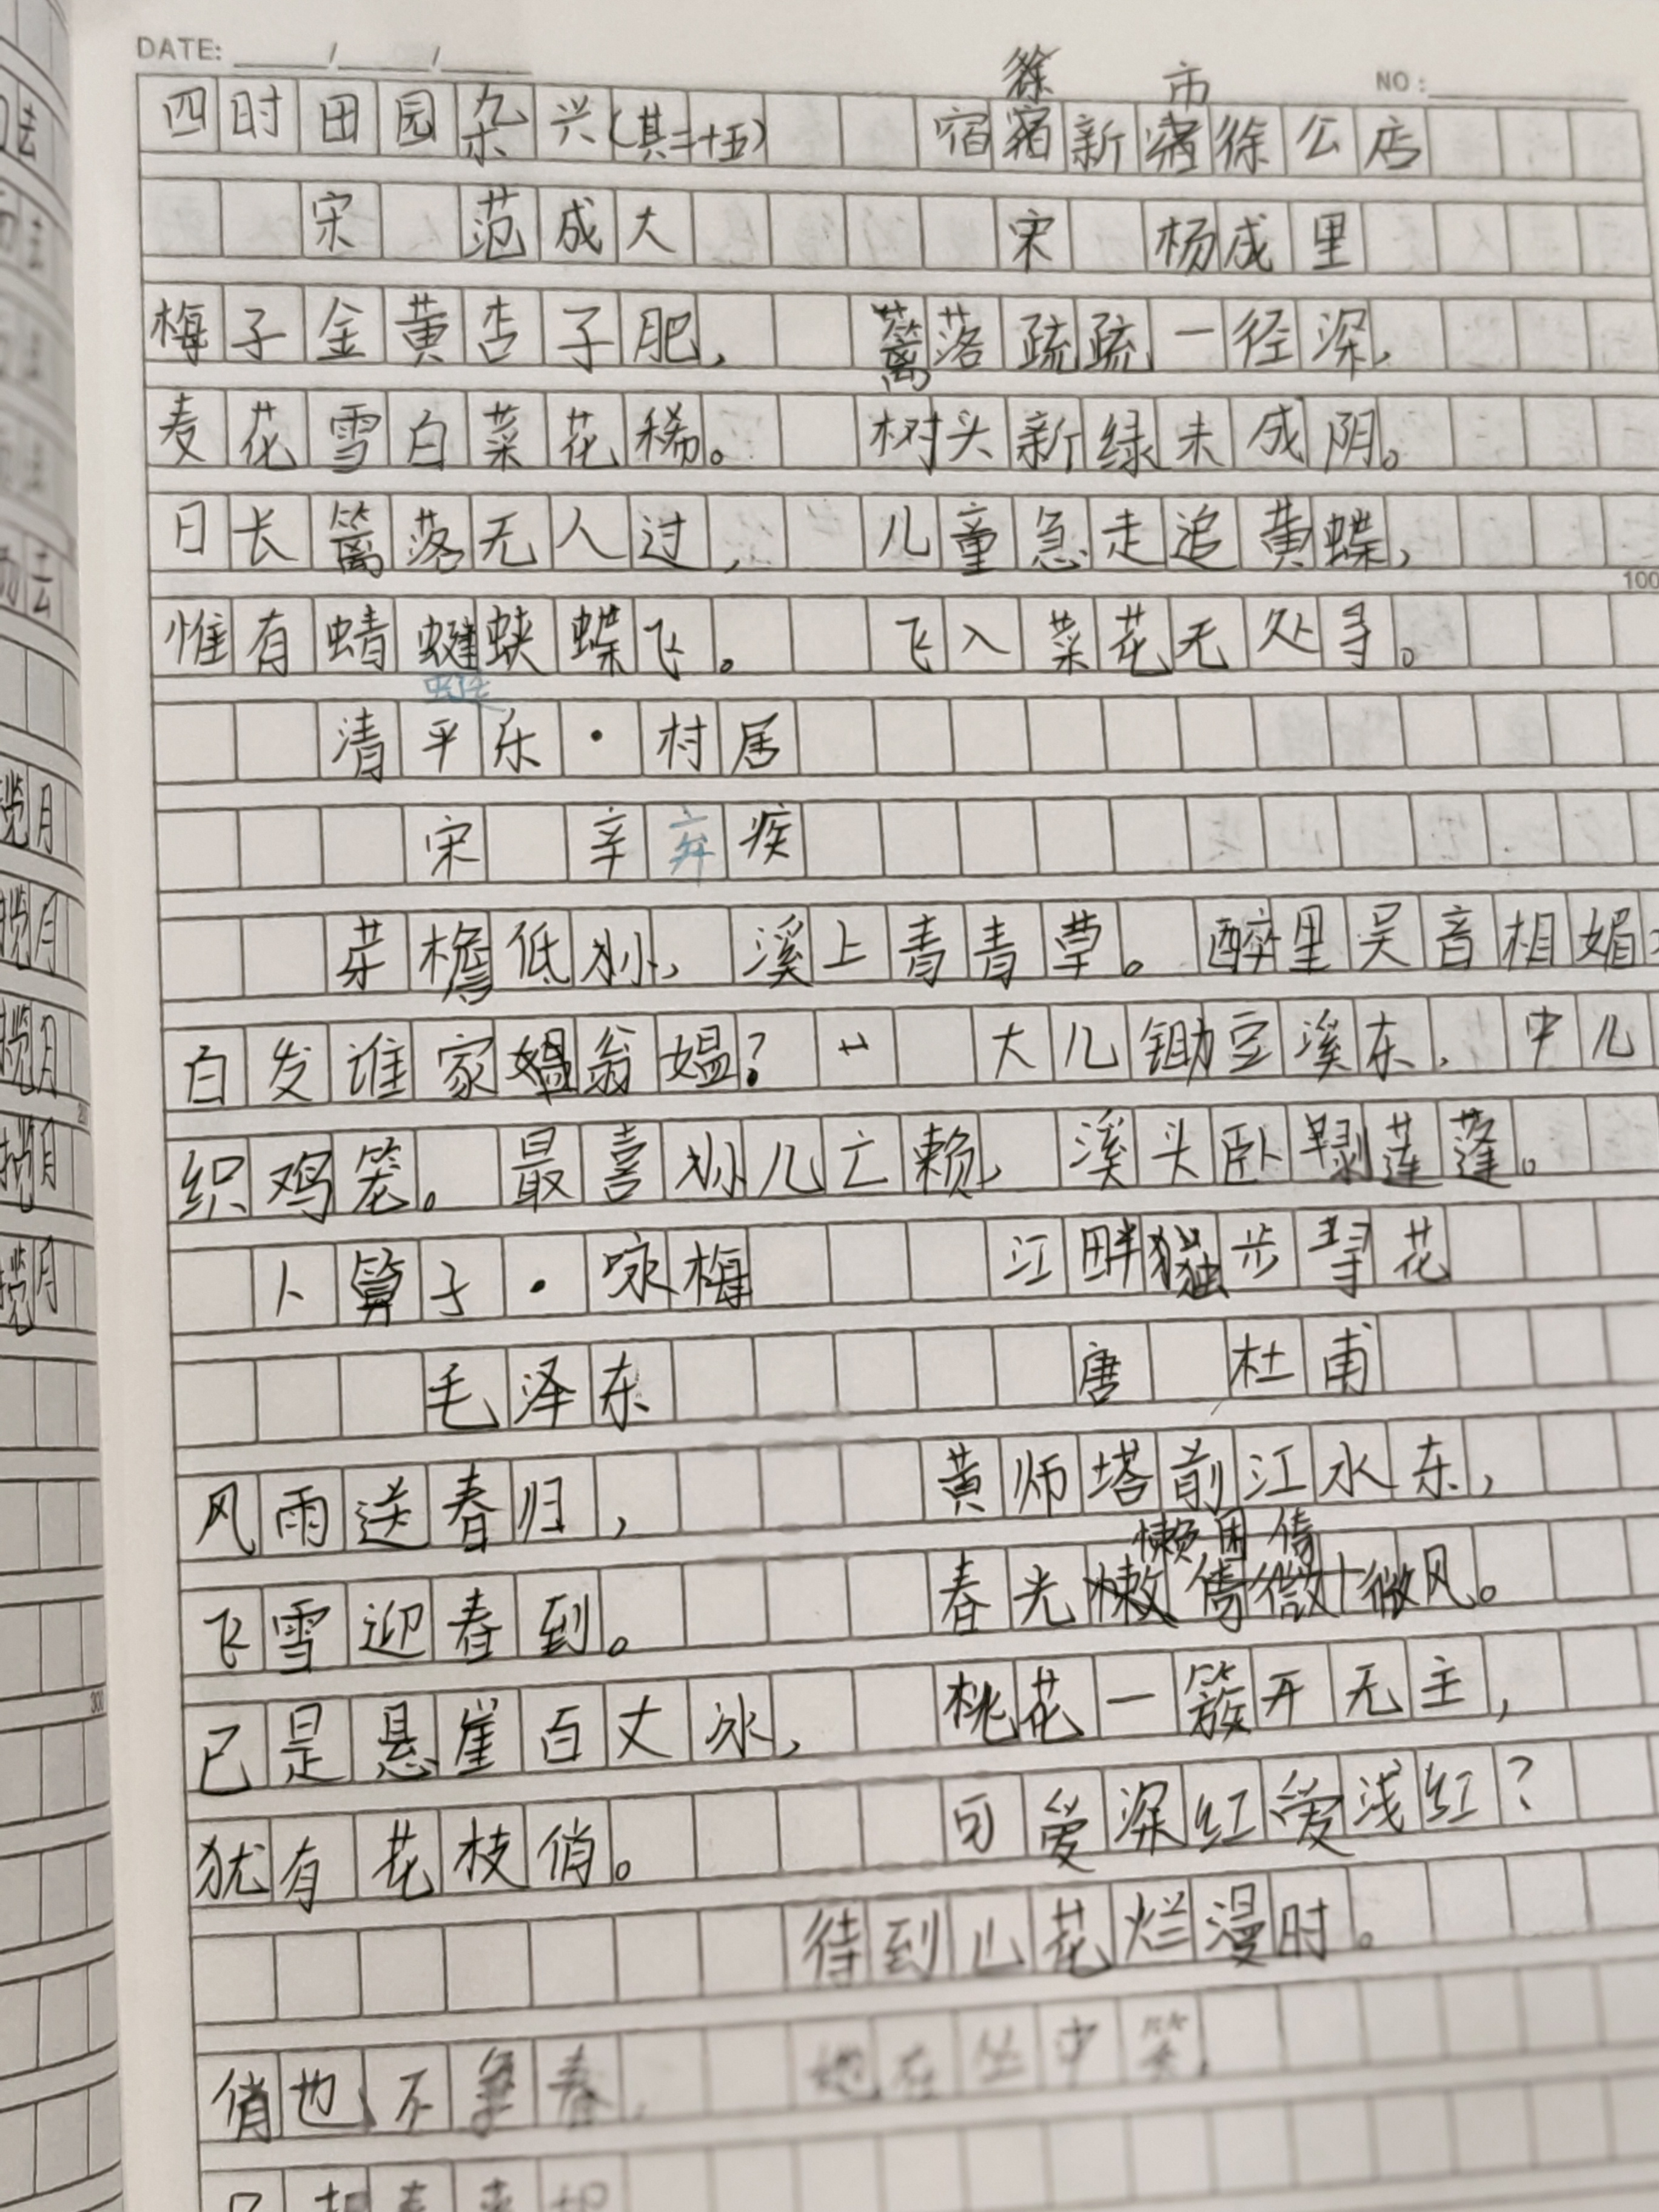 DATE: / /
NO:
徐 市
四时田园杂兴(其二十五) 宿新徐公店
宋 范成大 宋 杨成里
梅子金黄杏子肥, 篱落疏疏一径深,
麦花雪白菜花稀。 树头新绿未成阴。
日长篱落无人过, 儿童急走追黄蝶,
100
惟有蜻蜓蛱蝶飞。 飞入菜花无处寻。
蜓
清平乐·村居
宋 辛弃疾
茅檐低小, 溪上青青草。醉里吴音相媚
白发谁家翁媪? 大儿锄豆溪东, 中儿
织鸡笼。最喜小儿亡赖, 溪头卧剥莲蓬。
卜算子·咏梅 江畔独步寻花
毛泽东 唐 杜甫
风雨送春归, 黄师塔前江水东,
懒困倚
飞雪迎春到。 春光微风。
已是悬崖百丈冰, 桃花一簇开无主,
犹有花枝俏。 可爱深红爱浅红?
待到山花烂漫时。
俏也不争春, 她在丛中笑。